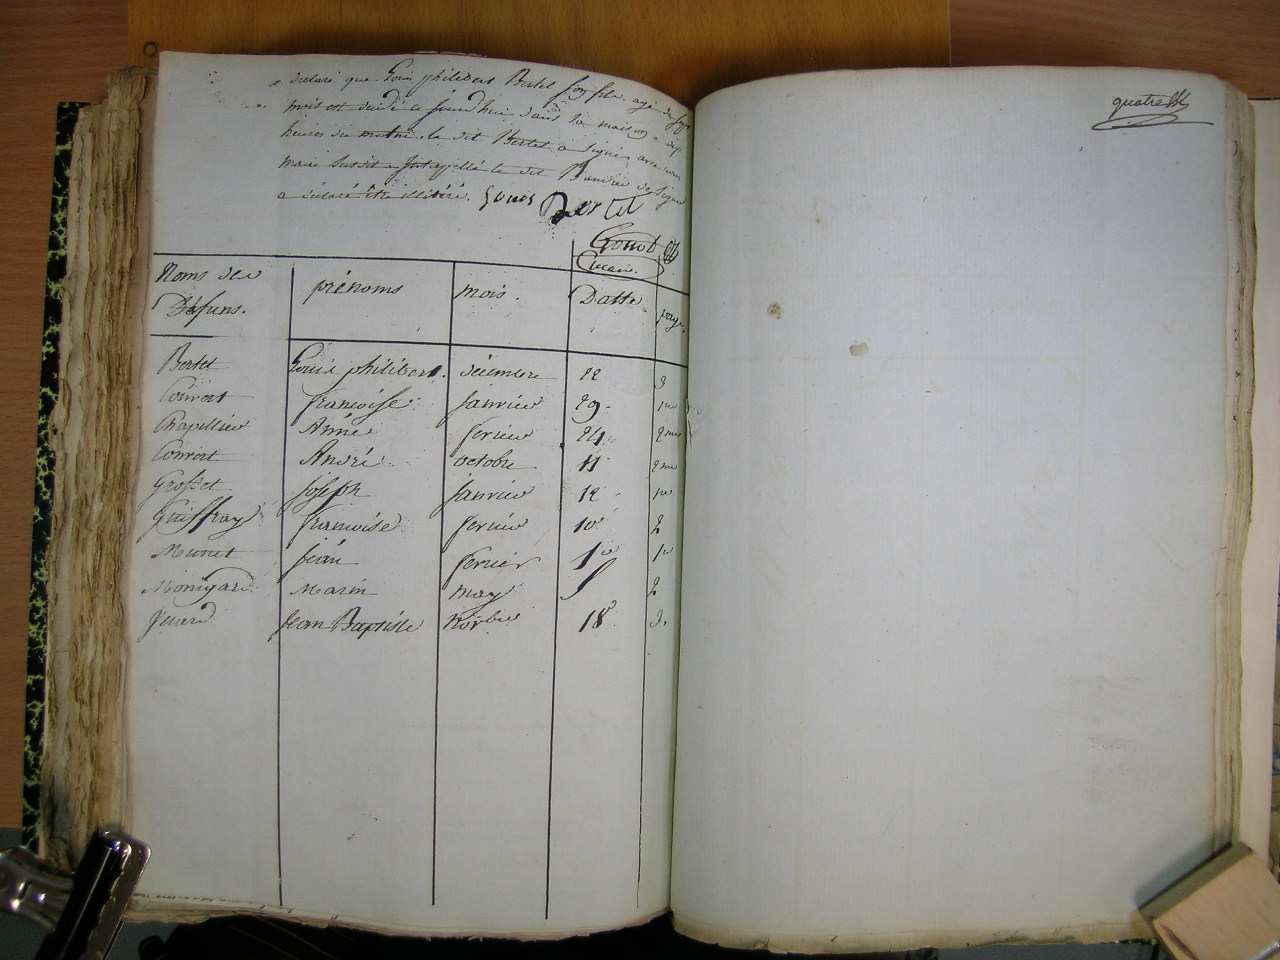 a déclaré que Louis philibert Bertet son fils agé de sept
mois est décédé a jourdhui dans sa maison a dix
heures du matin. le dit Bertet a signé avec
maire susdit le dit de signer
a déclaré être illitéré. Louis Bertet
Gonod
maire.
Noms des Défuns. prénoms mois. Datte page.
Bertet Louis philibert. décembre 12 3
Convert françoise janvier 29 1re
Chapellier Anne fevrier 24 2me
Convert André octobre 11 2me
Grosset Joseph janvier 12 1re
Guiffray françoise fevrier 10 2
Munet jean fevrier 1er 1re
Monigard Marin may 5 2
Jean Baptiste 18 3.
quatre